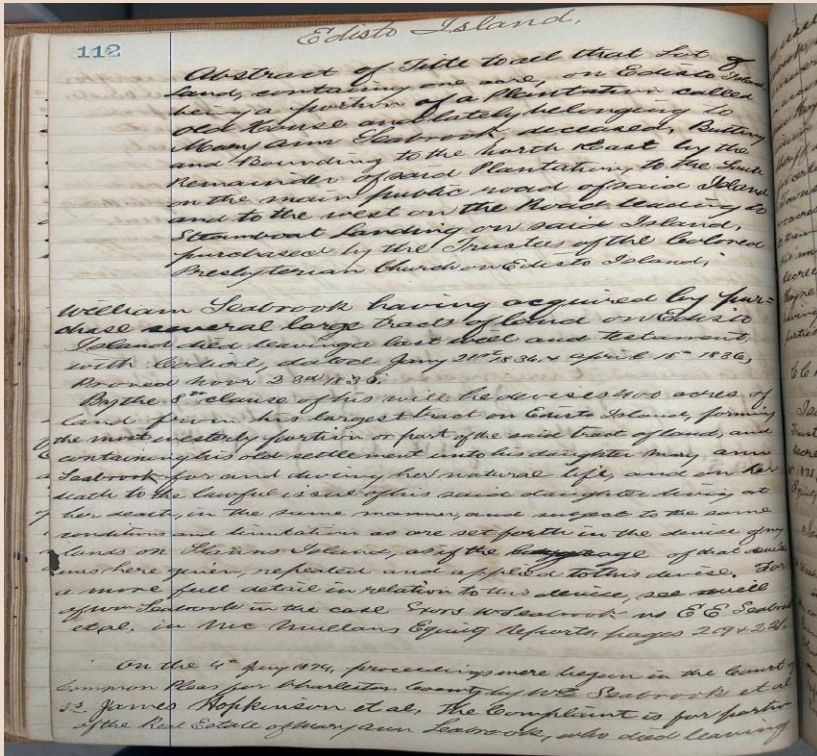 112
Edisto Island.
Abstract of Title to all that Lot of
Land, containing one acre, on Edisto Island
being a portion of a Plantation called
Old House and lately belonging to
Mary Ann Seabrook, deceased, Butting
and Bounding to the North East by the
Remainder of said Plantation, to the South
on the main public road of said Island
and to the west on the Road leading to
Steamboat Landing on said Island,
purchased by the Trustees of the Colored
Presbyterian Church on Edisto Island,
William Seabrook having acquired by pur=
chase several large tracts of land on Edisto
Island died leaving a last will and testament
with Codicil, dated Jany 21st 1836, & April 15th 1836,
Proved Novr 23rd 1836.
By the 8th clause of his will he devises 400 acres of
land from his largest tract on Edisto Island, forming
the most westerly portion or part of the said tract of land, and
containing his old settlement unto his daughter Mary Ann
Seabrook for and during her natural life, and on her
death to the lawful issue of his said daughter living at
her death, in the same manner, and subject to the same
conditions and limitation as are set forth in the devise of my
lands on Island, as if the of that devise
was here given, repeated and applied to this devise. For
a more full detail in relation to this devise, see will
of Wm Seabrook in the case Exors W Seabrook vs E E Seabrook
et al, in Mc Mullans Equity Reports, pages
On the 4th Jany proceedings were begun in the Court of
Common Pleas for Charleston County by Seabrook et al
vs James Hopkinson et al, The Complaint is for partition
of the Real Estate of Mary Ann Seabrook, who died leaving